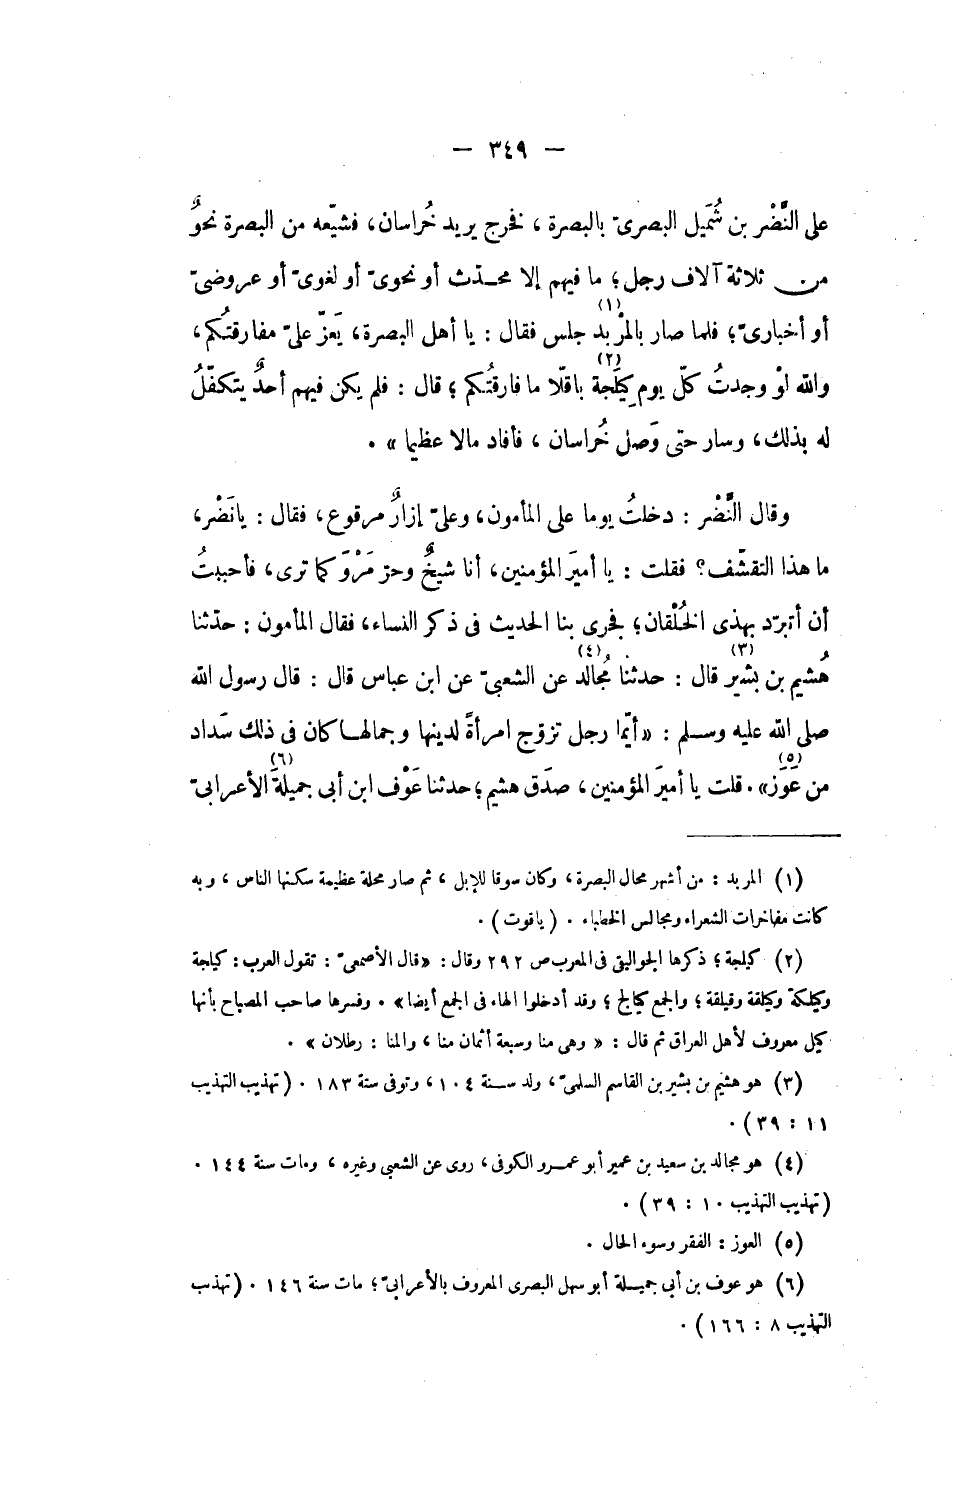 — ٣٤٩ —
على النَّضْر بن شُمَيل البصرىّ بالبصرة ، فخرج يريد خُراسان، فشيّعه من البصرة نحوٌ
من ثلاثة آلاف رجل؛ ما فيهم إلا محدّث أو نحوىّ أو لغوىّ أو عروضىّ
أو أخبارىّ؛ فلما صار بالمرْبد (١) جلس فقال : يا أهل البصرة، يَعزّ علىّ مفارقتُكم،
والله لوْ وجدتُ كلّ يوم كِيلَجة (٢) باقلّا ما فارقتُكم ؛ قال : فلم يكن فيهم أحدٌ يتكفّلُ
له بذلك، وسار حتى وَصل خُراسان ، فأفاد مالا عظيما » .
وقال النَّضْر : دخلتُ يوما على المأمون، وعلىّ إزارٌ مرقوع، فقال : يا نَضْر،
ما هذا التقشّف؟ فقلت : يا أميرَ المؤمنين، أنا شيخٌ وحرّ مَرْوَ كما ترى، فأحببتُ
أن أتبرّد بهذى الخُلْقان؛ فجرى بنا الحديث فى ذكر النساء، فقال المأمون : حدّثنا
هُشيم بن بشير (٣) قال : حدثنا مُجالدُ (٤) عن الشعبىّ عن ابن عباس قال : قال رسول الله
صلى الله عليه وسلم : «أيّما رجل تزوّج امرأةً لدينها وجمالها كان فى ذلك سَداد
من عَوَز (٥)». قلت يا أميرَ المؤمنين، صدَق هشيم؛ حدثنا عَوْف ابن أبى جميلةَ (٦) الأعرابىّ
(١) المربد : من أشهر محال البصرة، وكان سوقا للإبل ، ثم صار محلة عظيمة سكنها الناس ، وبه
كانت مفاخرات الشعراء ومجالس الخطباء . (ياقوت) .
(٢) كيلجة؛ ذكرها الجواليقى فى المعرب ص ٢٩٢ وقال : «قال الأصمعىّ : تقول العرب : كيلجة
وكيلكة وكيلقة وقيلقة ؛ والجمع كيالج ؛ وقد أدخلوا الهاء فى الجمع أيضا» . وفسرها صاحب المصباح بأنها
كيل معروف لأهل العراق ثم قال : « وهى منا وسبعة أثمان منا ، والمنا : رطلان » .
(٣) هو هشيم بن بشير بن القاسم السلمىّ، ولد سنة ١٠٤، وتوفى سنة ١٨٣ . (تهذيب التهذيب
١١ : ٣٩) .
(٤) هو مجالد بن سعيد بن عمير أبو عمرو الكوفى، روى عن الشعبى وغيره ، ومات سنة ١٤٤ .
(تهذيب التهذيب ١٠ : ٣٩) .
(٥) العوز : الفقر وسوء الحال .
(٦) هو عوف بن أبى جميلة أبو سهل البصرى المعروف بالأعرابىّ؛ مات سنة ١٤٦ . (تهذيب
التهذيب ٨ : ١٦٦) .